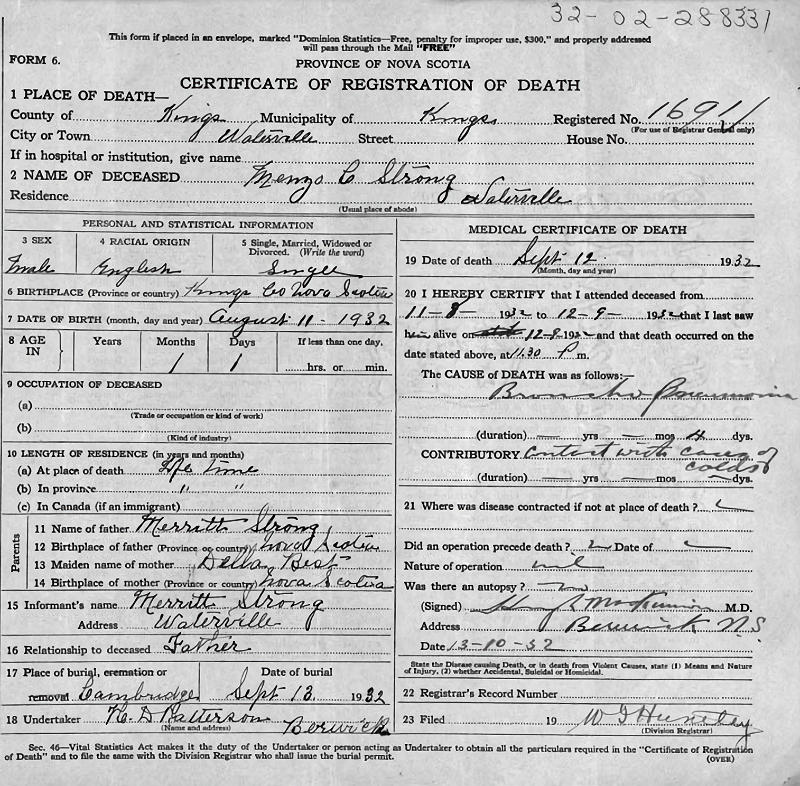 32-02-288331
This form if placed in an envelope, marked "Dominion Statistics—Free, penalty for improper use, $300," and properly addressed
will pass through the Mail "FREE"
FORM 6.
PROVINCE OF NOVA SCOTIA
CERTIFICATE OF REGISTRATION OF DEATH
1 PLACE OF DEATH—
County of Kings Municipality of Kings Registered No. 16911
(For use of Registrar General only)
City or Town Waterville Street House No.
If in hospital or institution, give name
2 NAME OF DECEASED Menzo C Strong
Residence Waterville
(Usual place of abode)
PERSONAL AND STATISTICAL INFORMATION
3 SEX 4 RACIAL ORIGIN 5 Single, Married, Widowed or Divorced. (Write the word)
Male English Single
6 BIRTHPLACE (Province or country) Kings Co Nova Scotia
7 DATE OF BIRTH (month, day and year) August 11 - 1932
8 AGE IN Years Months Days If less than one day,
1 1 hrs. or min.
9 OCCUPATION OF DECEASED
(a)
(Trade or occupation or kind of work)
(b)
(Kind of industry)
10 LENGTH OF RESIDENCE (in years and months)
(a) At place of death Life time
(b) In province " "
(c) In Canada (if an immigrant)
Parents
11 Name of father Merritt Strong
12 Birthplace of father (Province or country) Nova Scotia
13 Maiden name of mother Della Best
14 Birthplace of mother (Province or country) Nova Scotia
15 Informant's name Merritt Strong
Address Waterville
16 Relationship to deceased Father
17 Place of burial, cremation or Date of burial
removal Cambridge Sept 13 1932
18 Undertaker H. D Patterson Berwick
(Name and address)
MEDICAL CERTIFICATE OF DEATH
19 Date of death Sept 12 1932
(Month, day and year)
20 I HEREBY CERTIFY that I attended deceased from
11-8- 1932 to 12-9- 1932 that I last saw
him alive on 12-9 1932 and that death occurred on the
date stated above, at 11.30 P m.
The CAUSE of DEATH was as follows:—
Broncho Pneumonia
(duration) — yrs — mos 4 dys.
CONTRIBUTORY contact with cases of
colds
(duration) — yrs — mos — dys.
21 Where was disease contracted if not at place of death?
Did an operation precede death? Date of
Nature of operation nil
Was there an autopsy? no
(Signed) Hugh MacKinnon M.D.
Address Berwick N.S.
Date 13-10-32
State the Disease causing Death, or in death from Violent Causes, state (1) Means and Nature
of Injury, (2) whether Accidental, Suicidal or Homicidal.
22 Registrar's Record Number
23 Filed 19
(Division Registrar)
Sec. 46—Vital Statistics Act makes it the duty of the Undertaker or person acting as Undertaker to obtain all the particulars required in the "Certificate of Registration
of Death" and to file the same with the Division Registrar who shall issue the burial permit.
(OVER)